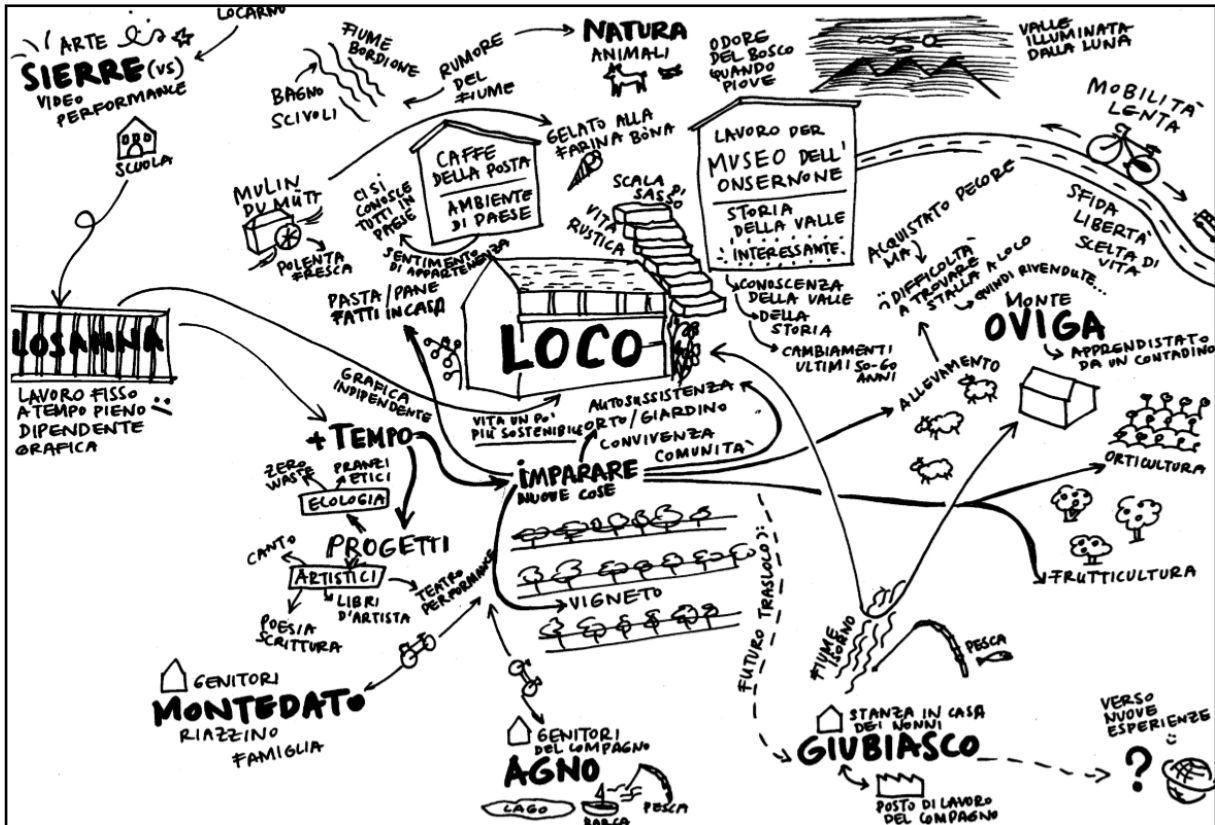 LOCARNO
ARTE
SIERRE (VS)
VIDEO
PERFORMANCE
SCUOLA
FIUME
BORDIONE
BAGNO
SCIVOLI
RUMORE
DEL
FIUME
NATURA
ANIMALI
ODORE
DEL BOSCO
QUANDO
PIOVE
VALLE
ILLUMINATA
DALLA LUNA
MOBILITÀ
LENTA
SFIDA
LIBERTÀ
SCELTA DI
VITA
MULIN
DU MÜTT
POLENTA
FRESCA
CI SI
CONOSCE
TUTTI IN
PAESE
CAFFE
DELLA POSTA
AMBIENTE
DI PAESE
SENTIMENTO
DI APPARTENENZA
GELATO ALLA
FARINA BÒNA
SCALA
DI
SASSO
VITA
RUSTICA
LAVORO PER
MUSEO DELL'
ONSERNONE
STORIA
DELLA VALLE
INTERESSANTE
CONOSCENZA
DELLA VALLE
DELLA
STORIA
CAMBIAMENTI
ULTIMI 50-60
ANNI
ACQUISTATO PECORE
MA
DIFFICOLTÀ
A TROVARE
STALLA A LOCO
QUINDI RIVENDUTE...
MONTE
OVIGA
APPRENDISTATO
DA UN CONTADINO
PASTA/PANE
FATTI IN CASA
LOCO
LOSANNA
LAVORO FISSO
A TEMPO PIENO
DIPENDENTE
GRAFICA
GRAFICA
INDIPENDENTE
VITA UN PO'
PIÙ SOSTENIBILE
AUTOSUSSISTENZA
ORTO/GIARDINO
CONVIVENZA
COMUNITA'
ALLEVAMENTO
ORTICULTURA
FRUTTICULTURA
+ TEMPO
IMPARARE
NUOVE COSE
ZERO
WASTE
PRANZI
ETICI
ECOLOGIA
PROGETTI
CANTO
ARTISTICI
LIBRI
D'ARTISTA
TEATRO
PERFORMANCE
POESIA
SCRITTURA
VIGNETO
FUTURO TRASLOCO
FIUME
ISORNO
PESCA
GENITORI
MONTEDATO
RIAZZINO
FAMIGLIA
GENITORI
DEL COMPAGNO
AGNO
LAGO
BARCA
PESCA
STANZA IN CASA
DEI NONNI
GIUBIASCO
POSTO DI LAVORO
DEL COMPAGNO
VERSO
NUOVE
ESPERIENZE
?